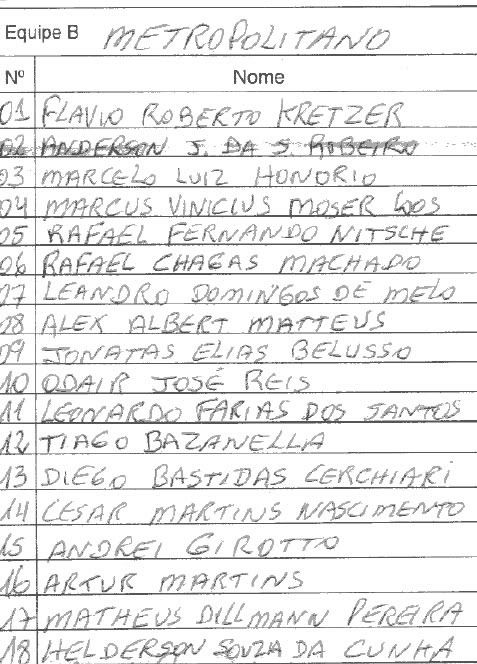 Equipe B METROPOLITANO
Nº Nome
01 FLAVIO ROBERTO KRETZER
02 ANDERSON J. DA S. RIBEIRO
03 MARCELO LUIZ HONORIO
04 MARCUS VINICIUS MOSER
05 RAFAEL FERNANDO NITSCHE
06 RAFAEL CHAGAS MACHADO
07 LEANDRO DOMINGOS DE MELO
08 ALEX ALBERT MATTEUS
09 JONATAS ELIAS BELUSSO
10 ODAIR JOSÉ REIS
11 LEONARDO FARIAS DOS SANTOS
12 TIAGO BAZANELLA
13 DIEGO BASTIDAS CERCHIARI
14 CESAR MARTINS NASCIMENTO
15 ANDREI GIROTTO
16 ARTUR MARTINS
17 MATHEUS DILLMANN PEREIRA
18 HELDERSON SOUZA DA CUNHA